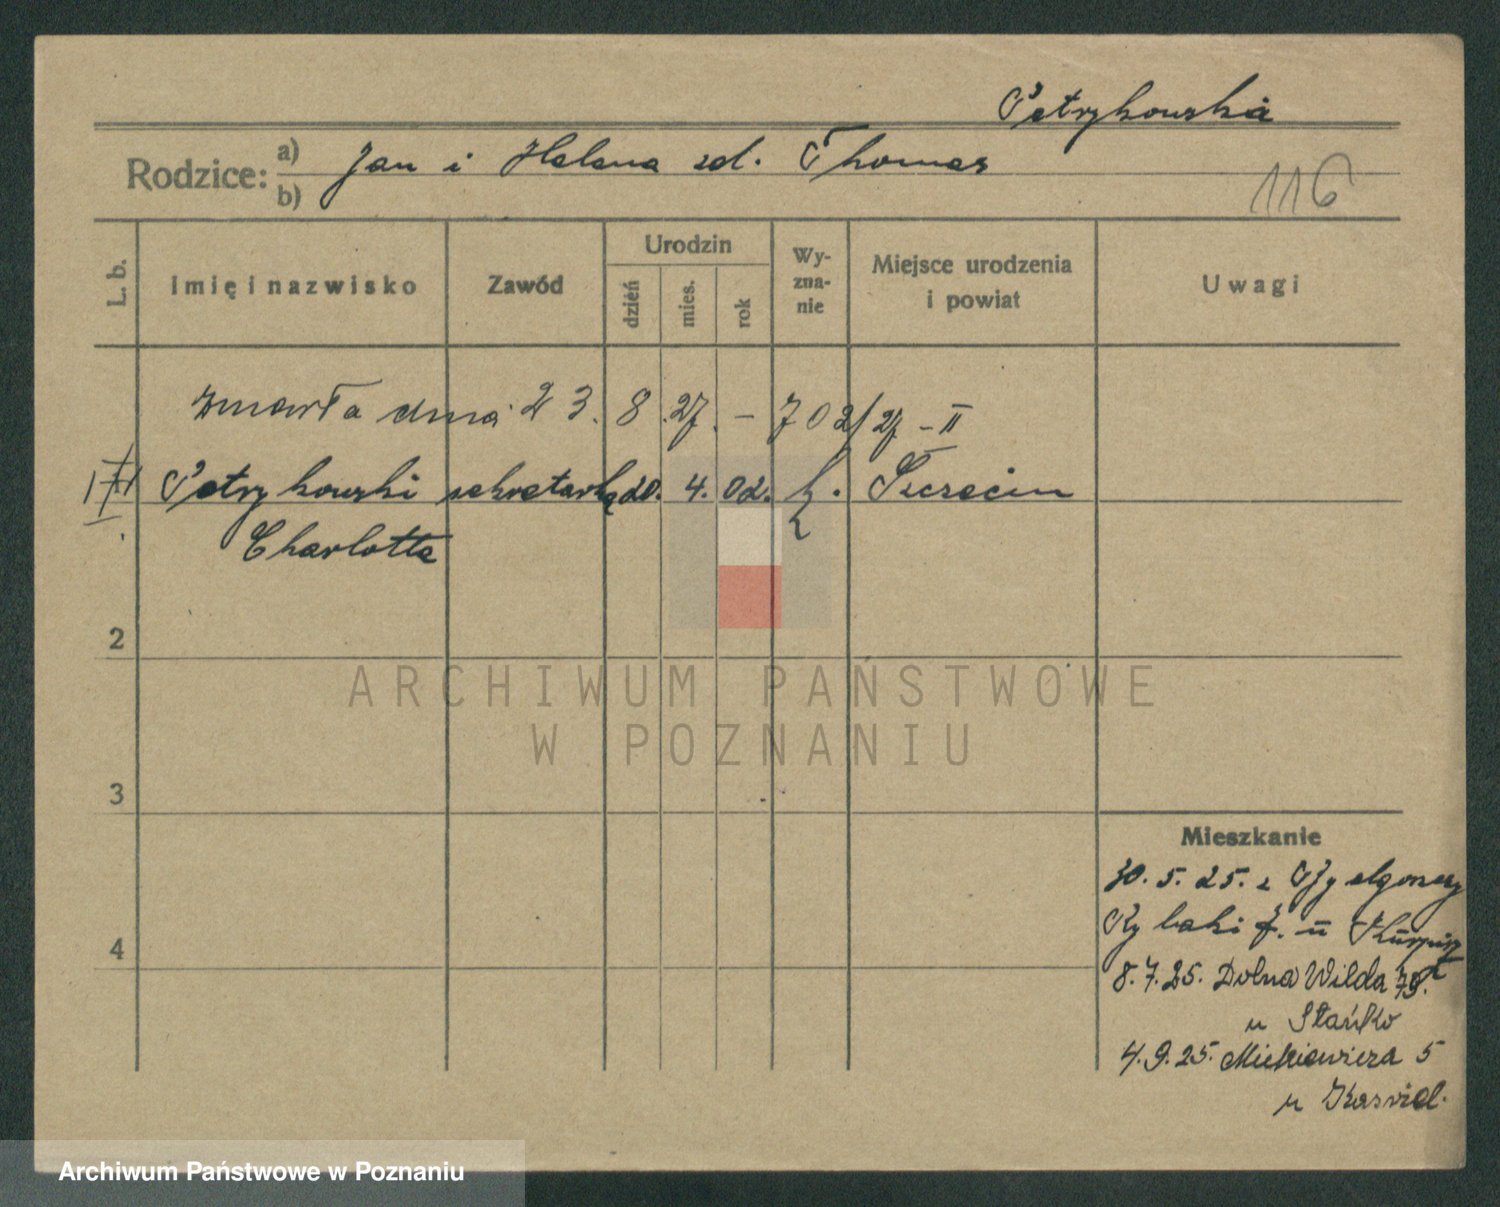 Petrykowska
Rodzice: a) Jan i Helena zd. Thomas
b)
116
L. b. Imię i nazwisko Zawód Urodzin dzień mies. rok Wyznanie Miejsce urodzenia i powiat Uwagi
zmarła dnia 23. 8. 27. – 702/27 – II
Petrykowski sekretarka 20. 4. 02. Szczecin
Charlotta
2
3
4
Mieszkanie
30. 5. 25. z Bydgoszczy
Rybaki
8. 7. 25. Dolna Wilda
u Stańko
4. 9. 25. Mickiewicza 5
u
ARCHIWUM PAŃSTWOWE
W POZNANIU
Archiwum Państwowe w Poznaniu